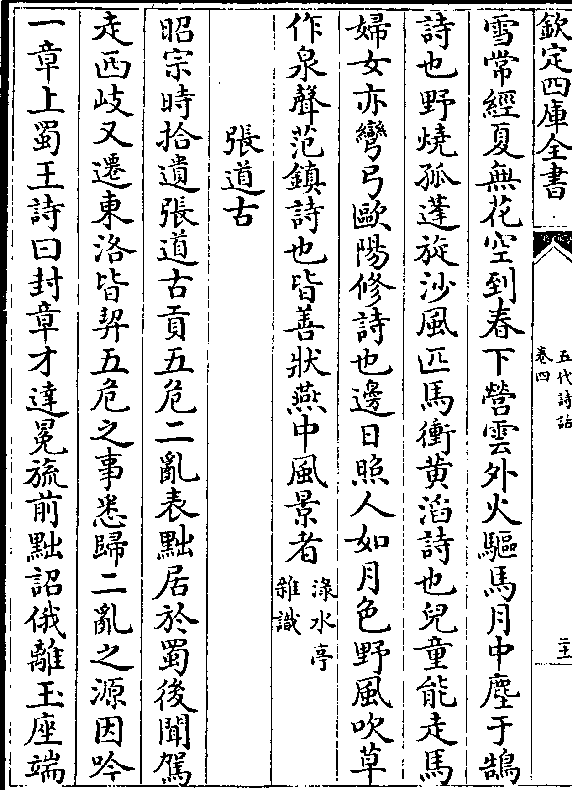 欽定四庫全書
五代詩話
卷四
二十一
雪常經夏無花空到春下營雲外火驅馬月中塵于鵠
詩也野燒孤蓬旋沙風匹馬衝黄滔詩也兒童能走馬
婦女亦彎弓歐陽修詩也邊日照人如月色野風吹草
作泉聲范鎮詩也皆善狀燕中風景者淥水亭雜識
張道古
昭宗時拾遺張道古貢五危二亂表黜居於蜀後聞駕
走西岐又遷東洛皆契五危之事悉歸二亂之源因吟
一章上蜀王詩曰封章才達冕旒前黜詔俄離玉座端